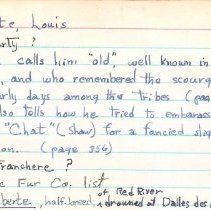 te, Louis
arty ?
calls him "old", well known in
, and who remembered the scourg
rly days among the tribes (pag
lso tells how he tried to embarass
"Chat" (Shaw) for a fancied slig
on. (page 356)
Franchere ?
c Fur Co. list
of Red River
berte, half-breed, drowned at Dalles des